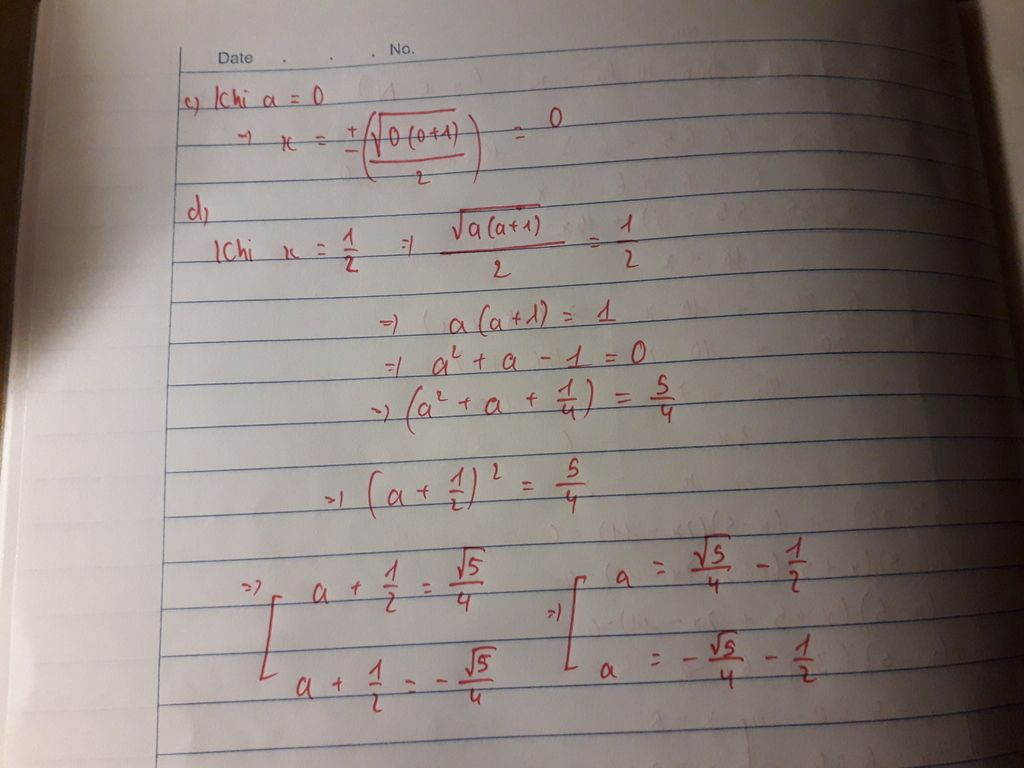 Date . . . No.
c) Khi a = 0
=> x = ±(√0(0+1)/2) = 0
d)
Khi x = 1/2 => √a(a+1)/2 = 1/2
=> a(a+1) = 1
=> a² + a - 1 = 0
=> (a² + a + 1/4) = 5/4
=> (a + 1/2)² = 5/4
=> [ a + 1/2 = √5/4 => [ a = √5/4 - 1/2
a + 1/2 = -√5/4 a = -√5/4 - 1/2